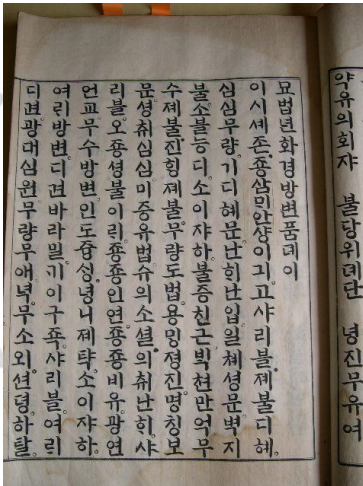 약유의회쟈 불당위뎨단 녕진무유여
묘법년화경방변품뎨이
이시셰존。죵삼미안샹이긔。고샤리불。졔불디혜。
심심무량。기디혜문난히난입。일쳬셩문벽지
불。소불능디。소이쟈하。불증친근빅쳔만억무
수졔불。진힝졔불。무량도법。용밍졍진。명칭보
문。셩취심심미증유법。슈의소셜。의취난히。샤
리불。오죵셩불이리。죵죵인연。죵죵비유。광연
언교。무수방변。인도즁싱。녕니졔탹。소이쟈하。
여리방변。디견바라밀。기이구죡。샤리불。여리
디견。광대심원。무량무애。녁。무소외。션뎡。하탈。